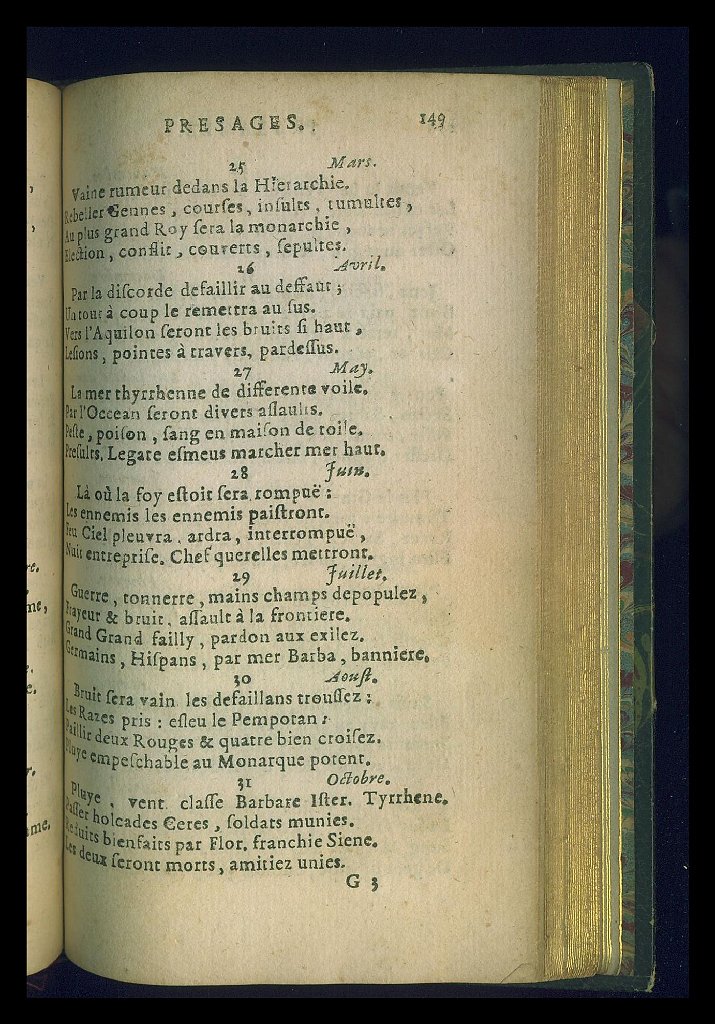 PRESAGES. 149
25 Mars.
Vaine rumeur dedans la Hierarchie.
Rebeller Gennes, courſes, inſults, tumultes,
Au plus grand Roy ſera la monarchie,
Election, conflit, couverts, ſepultes.
26 Avril.
Par la diſcorde defaillir au deffaut;
Un tout à coup le remettra au ſus.
Vers l'Aquilon ſeront les bruits ſi haut,
Leſions, pointes à travers, pardeſſus.
27 May.
La mer thyrrhenne de differente voile.
Par l'Occean ſeront divers aſſaults.
Peſte, poiſon, ſang en maiſon de toile.
Preſults, Legate eſmeus marcher mer haut.
28 Juin.
Là où la foy eſtoit ſera rompuë:
Les ennemis les ennemis paiſtront.
Feu Ciel pleuvra, ardra, interrompuë,
Nuit entrepriſe. Chef querelles mettront.
29 Juillet.
Guerre, tonnerre, mains champs depopulez,
Frayeur & bruit, aſſault à la frontiere.
Grand Grand failly, pardon aux exilez.
Germains, Hiſpans, par mer Barba, banniere.
30 Aouſt.
Bruit ſera vain les defaillans trouſſez:
Les Razes pris: eſleu le Pempotan:
Faillir deux Rouges & quatre bien croiſez.
Pluye empeſchable au Monarque potent.
31 Octobre.
Pluye, vent. claſſe Barbare Iſter. Tyrrhene.
Paſſer holcades Ceres, ſoldats munies.
Reduits bienfaits par Flor. franchie Siene.
Les deux ſeront morts, amitiez unies.
G 3
re.
me,
e.
r.
me.